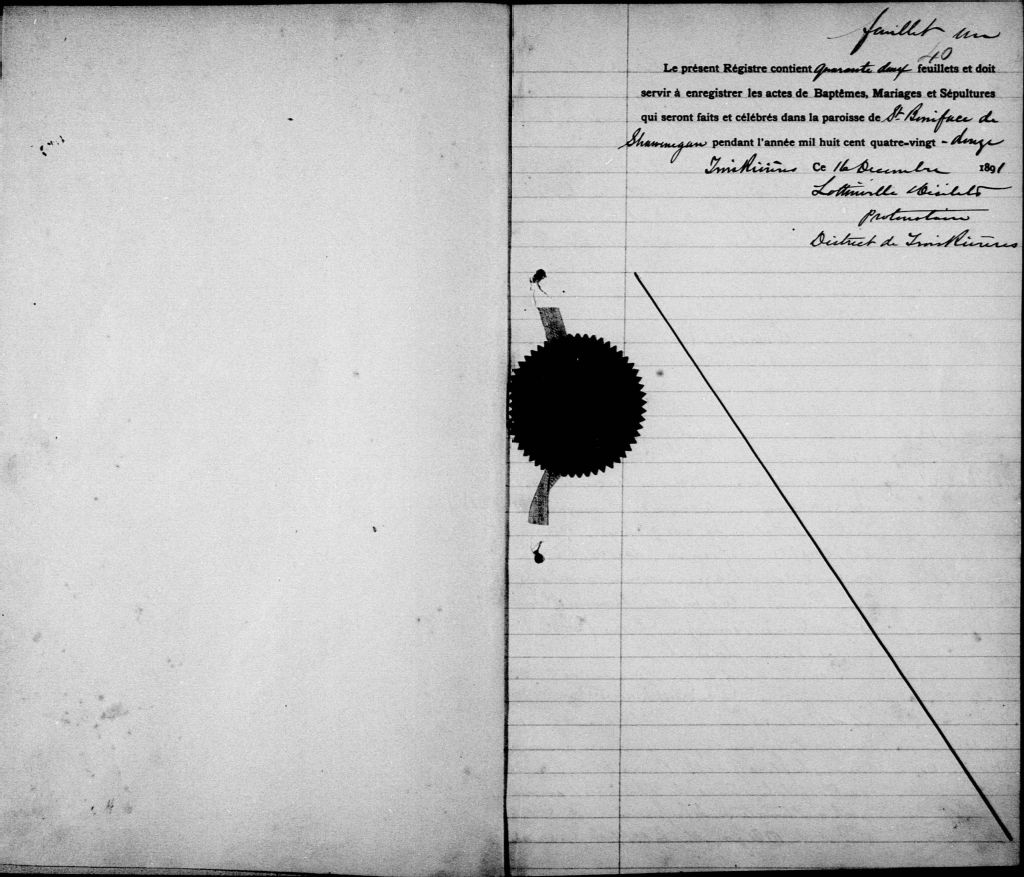 feuillet un
40
Le présent Régistre contient quarante deux feuillets et doit
servir à enregistrer les actes de Baptêmes, Mariages et Sépultures
qui seront faits et célébrés dans la paroisse de St Boniface de
Shawenegan pendant l'année mil huit cent quatre-vingt - douze
Trois Rivières Ce 16 Decembre 1891
Lottinville
Protonotaire
District de Trois Rivières